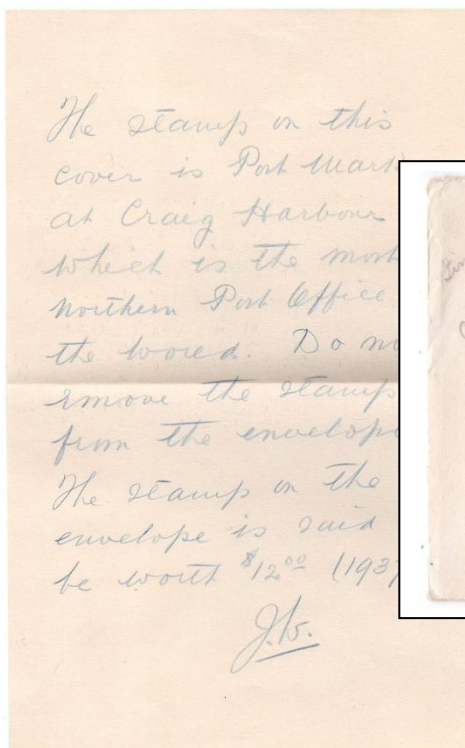 The stamp on this
cover is Post Mark
at Craig Harbour
which is the most
northern Post Office
the world. Do
remove the stamp
from the envelope
The stamp on the
envelope is said
be worth $12.00 (1937
J.W.